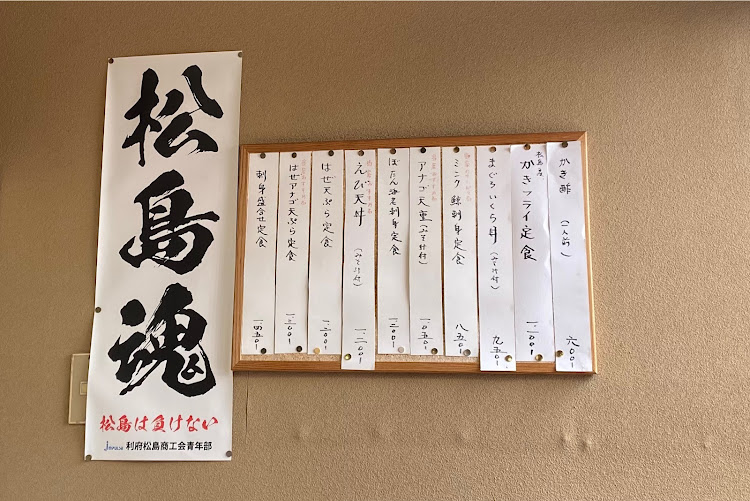 松島魂
松島は負けない
利府松島商工会青年部
かき酢（一人前）　六〇〇
松島産
かきフライ定食　一、二〇〇
まぐろいくら丼（みそ汁付）　九五〇
ミンク鯨刺身定食　八五〇
アナゴ天重（みそ汁付）　一、〇五〇
ぼたん海老刺身定食　一、二〇〇
えび天丼（みそ汁付）　一、二〇〇
はぜ天ぷら定食　一、二〇〇
はぜアナゴ天ぷら定食　一、三〇〇
刺身盛合せ定食　一、四五〇